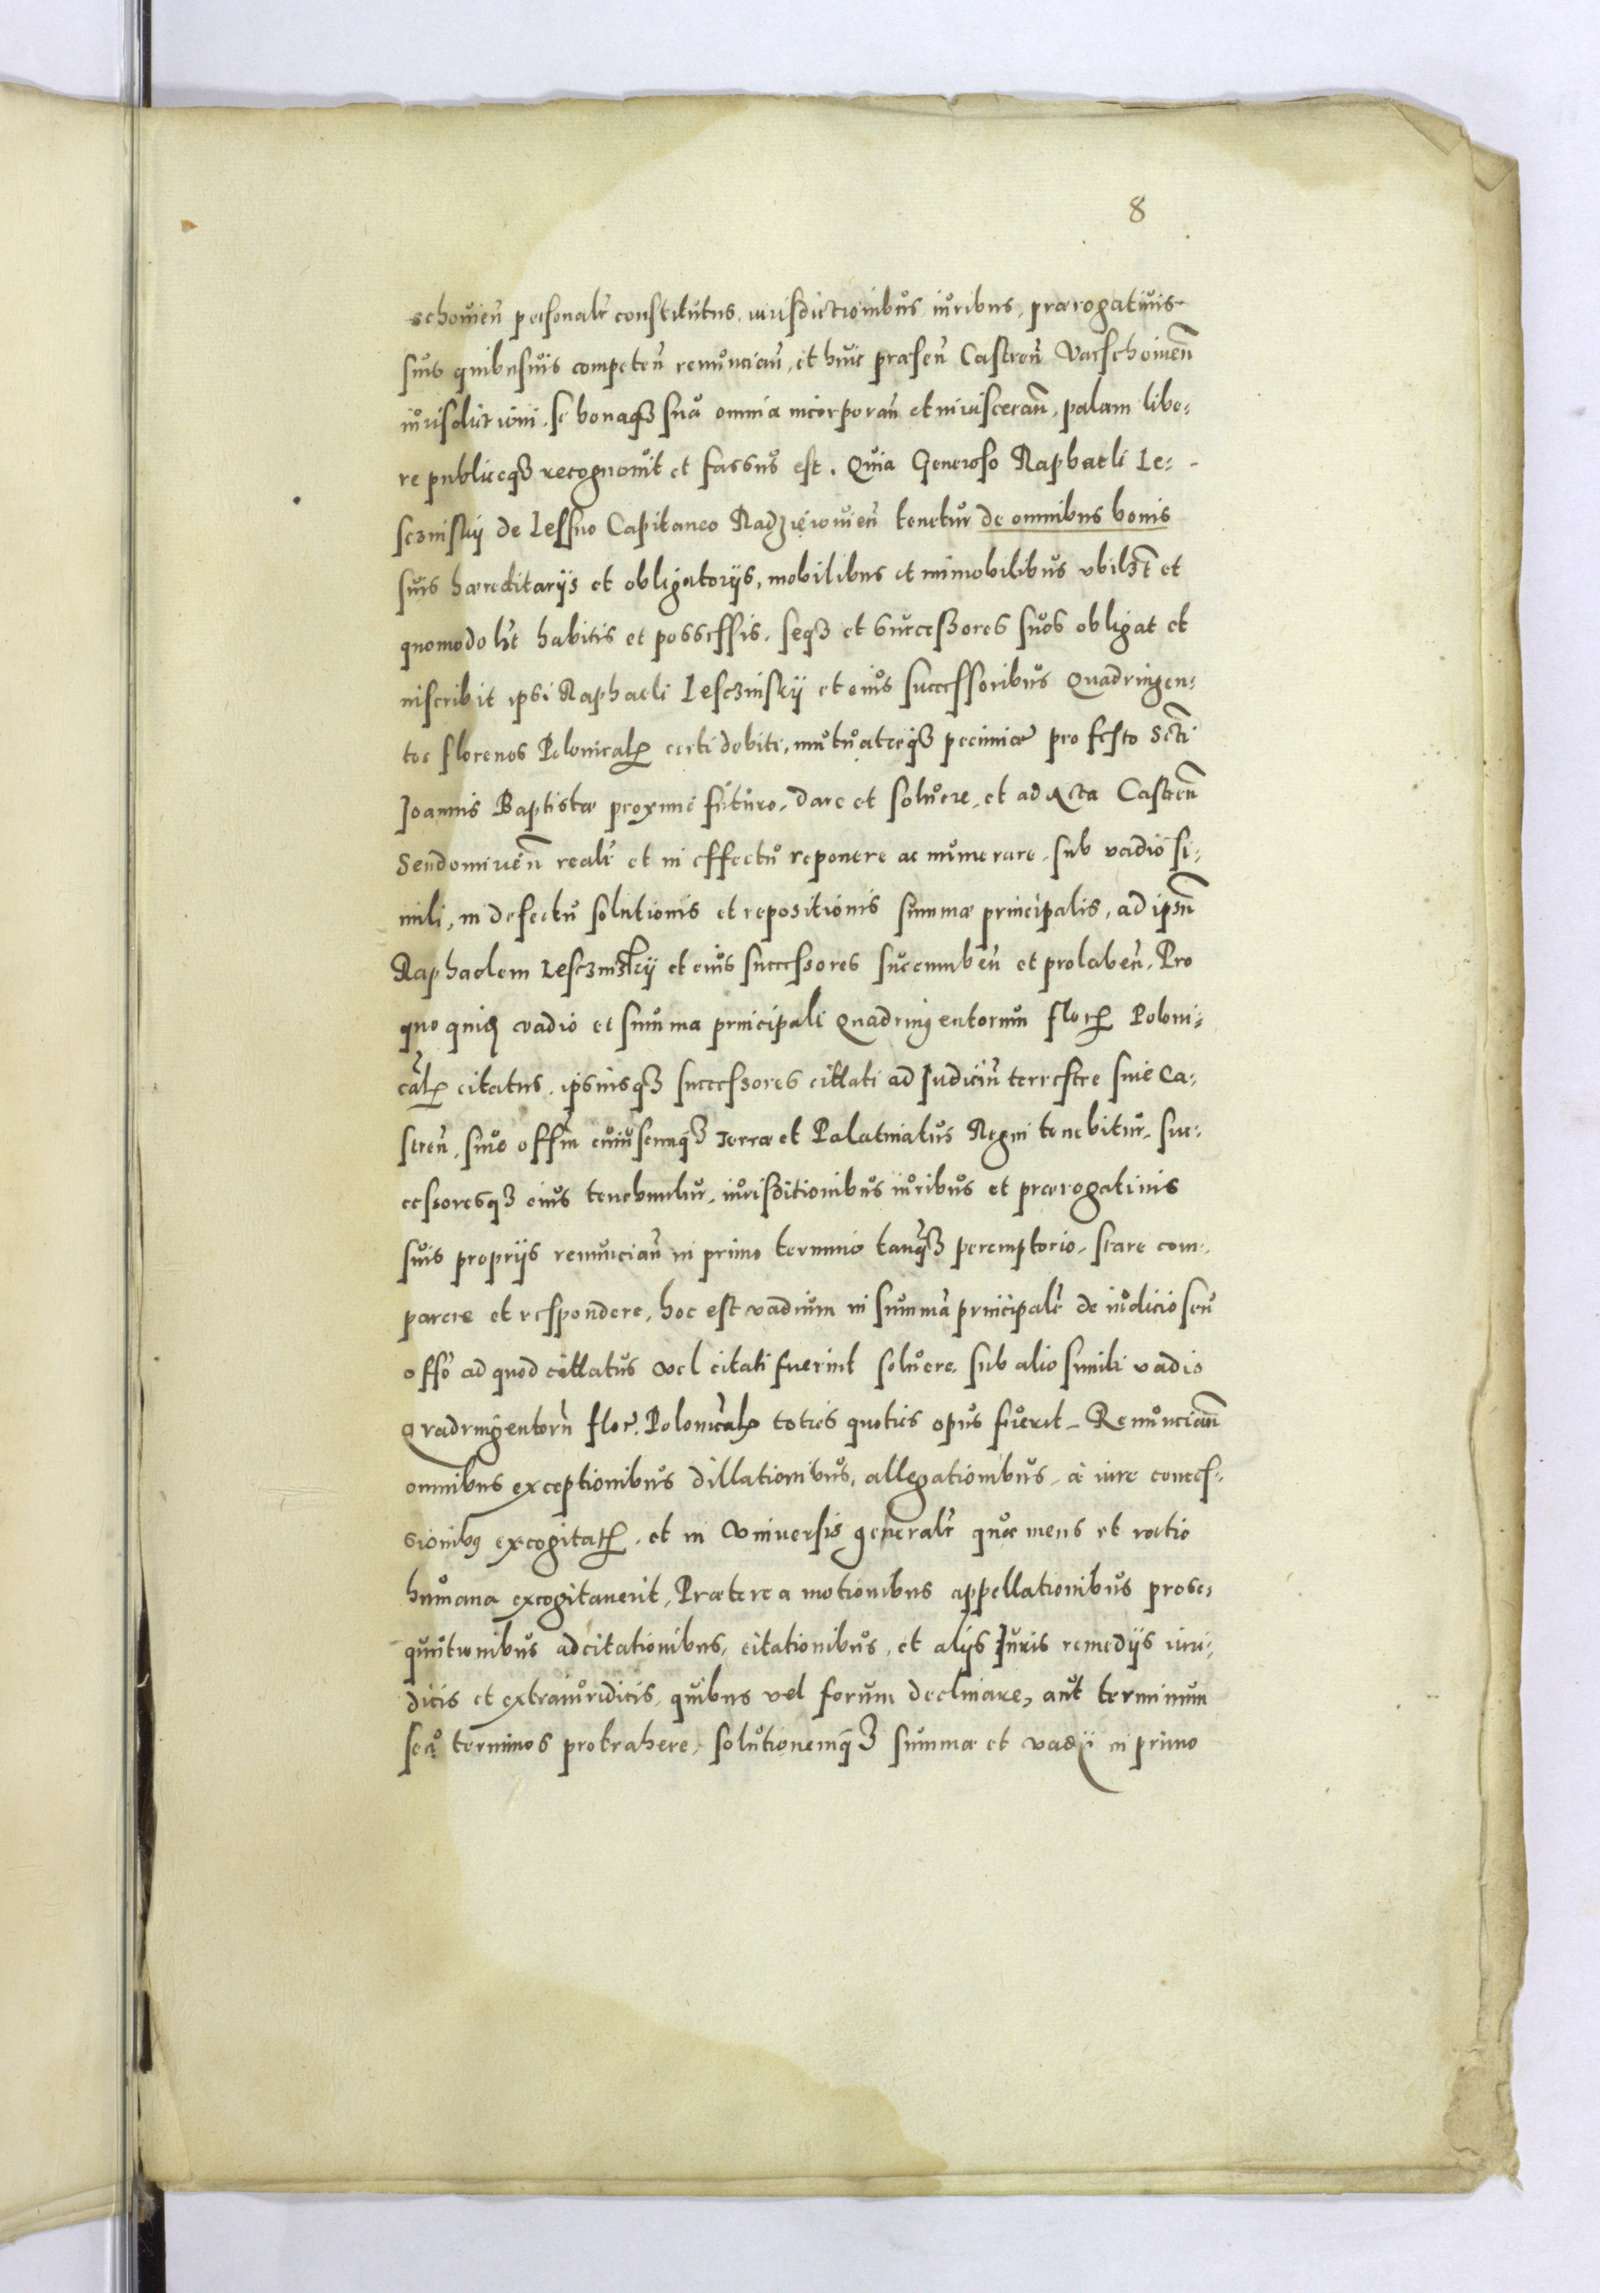 8
schovien̄ personalr̄ constitutus, iurisdictionibus iuribus, praerogativis
suis quibusuis competen̄ renuncian̄, et huic praesen̄ Castren̄ Varschovien̄
iurisdictioni. se bonaqȝ sua omnia incorporan̄ et invisceran̄, palam libe-
re publiceqȝ recognovit et fassus est. Quia Generoso Raphaeli Le-
sczinskij de Lessno Capitaneo Radzieiovien̄ tenetur de omnibus bonis
suis haereditarijs et obligatorijs, mobilibus et immobilibus ubilꝫt et
quomodolꝫt habitis et possessis. seqȝ et successores suos obligat et
inscribit ipsi Raphaeli Lesczinskij et eius successoribus Quadringen-
tos florenos Polonicalꝝ certi debiti, mutuataeqȝ pecuniae pro festo Scti
Joannis Baptistae proxime futuro, dare et soluere, et ad Acta Castren̄
Sendomirien̄ realr̄ et in effectu reponere ac numerare, sub vadio si-
mili, in defectu solutionis et repositionis summae principalis, ad ipsū
Raphaelem Lesczinskij et eius successores succumben̄ et prolaben̄. Pro
quo quidē vadio et summa principali Quadringentorum florꝝ Poloni-
calꝝ citatus, ipsiusqȝ successores cittati ad Judiciū terrestre sive Ca-
stren̄, sive offm̄ cuiuscumqȝ Terrae et Palatinatus Regni tenebitur, suc-
cessoresqȝ eius tenebuntur, iurisditionibus iuribus et praerogativis
suis proprijs renuncian̄ in primo termino tanqȝ peremptorio, stare com-
parere et respondere, hoc est vadium in summa principalr̄ de iudicio seu
offo ad quod cittatus vel citati fuerint soluere, sub alio simili vadio
Qvadringentorū flor. Polonicalꝝ toties quoties opus fuerit. Renuncian̄
omnibus exceptionibus dillationibus, allegationibus, a iure conces-
sionibꝯ excogitatꝝ, et in Universis generalr̄ quae mens et ratio
humana excogitaverit, Praeterea motionibus appellationibus prose-
quutionibus adcitationibus, citationibus, et alijs Juris remedijs iuri-
dicis et extraiuridicis, quibus vel forum declinare, aut terminum
seu terminos protrahere, solutionemqȝ summae et vadij in primo